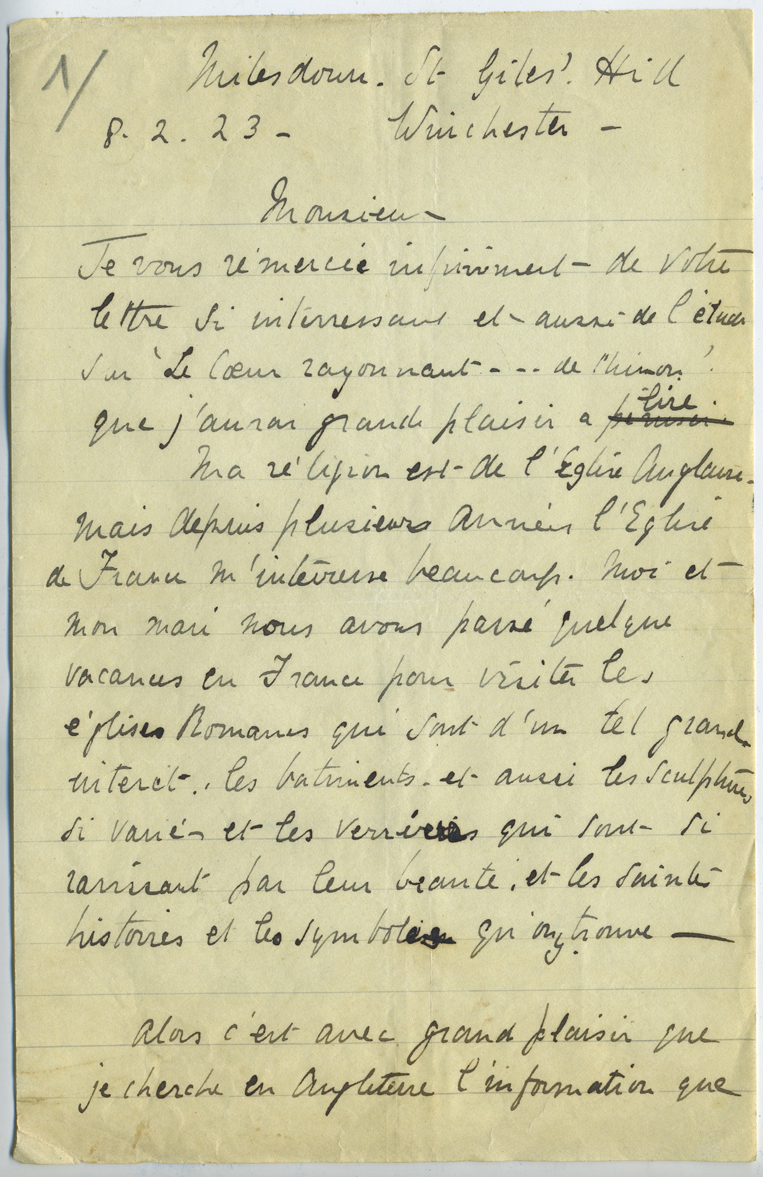 1/
Milesdown. St Giles'. Hill
8. 2. 23 - Winchester -
Monsieur
Je vous rémercie infiniment - de votre
lettre si interressant et - aussi de l'étude
sur 'Le Cœur rayonnant - - - de Chinon'.
que j'aurai grande plaisir a lire
Ma réligion est - de l'Eglise Anglaise -
mais depuis plusieurs Années l'Eglise
de France m'intéresse beaucoup. Moi et -
mon mari nous avons passé quelque
vacances en France pour visiter les
églises Romanes qui sont d'un tel grand
interêt., les batiments - et aussi les sculptures
si variés et les verrières qui sont - si
ravissant par leur beauté, et les saintes
histoires et les symboles qu'on y trouve —
Alors c'est avec grand plaisir que
je cherche en Angleterre l'information que